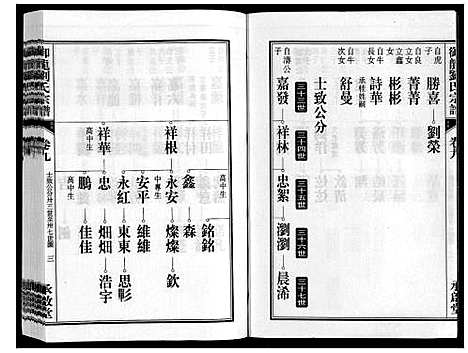 御龍劉氏宗譜
卷九
自虎
子
勝喜 劉榮
立鑫
女
菁菁
彬彬
自牛
長女
詩華
承桂姓嗣
自牛
次女
舒曼
士致公分
三十三世 三十四世 三十五世 三十六世 三十七世
自濤公
子
嘉發 祥林 忠絮 瀏瀏 晨浠
鑫 森 銘銘
祥根 永安 燦燦 欽
中專生
安平 維維
永紅 東東 思彤
祥華 忠 畑畑 浩宇
高中生
鵬 佳佳
高中生
御龍劉氏宗譜
卷九
士致公分卅三世至卅七世圖
三
永啟堂
永啟堂